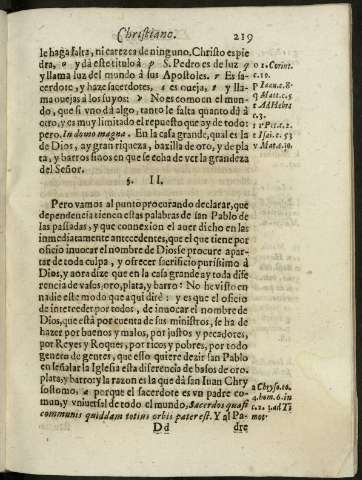 Christiano. 219
le haga falta, ni carezca de ninguno. Christo es pie
dra, o y dà este titulo à p S. Pedro es de luz q
y llama luz del mundo à sus Apostoles. r Es sa-
cerdote, y haze sacerdotes, s es oueja, t y lla-
ma ouejas à los suyos: v No es como en el mun-
do, que si vno dà algo, tanto le falta quanto dà à
otro, y es muy limitado el repuesto que ay de todo:
pero. In domo magna. En la casa grande, qual es la
de Dios, ay gran riqueza, barilla de oro, y de pla
ta, y barros finos en que se echa de ver la grandeza
del Señor.
o 1. Corint.
c. 10.
p Ioan. c. 8.
q Matt. c. 5
r Ad Hebr
c. 3.
s 1. Pet. c. 2.
t Isai. c. 53
v Mat. c. 10.
§. II.
Pero vamos al punto procurando declarar, que
dependencia tienen estas palabras de san Pablo de
las passadas, y que connexion el auer dicho en las
inmediatamente antecedentes, que el que tiene por
oficio inuocar el nombre de Dios se procure apar-
tar de toda culpa, y ofrecer sacrificio purissimo à
Dios, y aora dize que en la casa grande ay toda dife
rencia de vasos, oro, plata, y barro: No he visto en
nadie este modo que aqui dirè: y es que el oficio
de interceder por todos, de inuocar el nombre de
Dios, que està por cuenta de sus ministros, se ha de
hazer por buenos y malos, por justos y pecadores,
por Reyes y Roques, por ricos y pobres, por todo
genero de gentes, que esso quiere dezir san Pablo
en señalar la Iglesia esta diferencia de basos de oro,
plata, y barro: y la razon es la que dà san Iuan Chry
sostomo, a porque el sacerdote es vn padre co-
mun, y vniuersal de todo el mundo, Sacerdos quasi
communis quiddam totius orbis pater est. Y al Pa-
a Chryso. to.
4. hom. 6. in
c. 2. 1. ad Ti
mot.
Dd dre